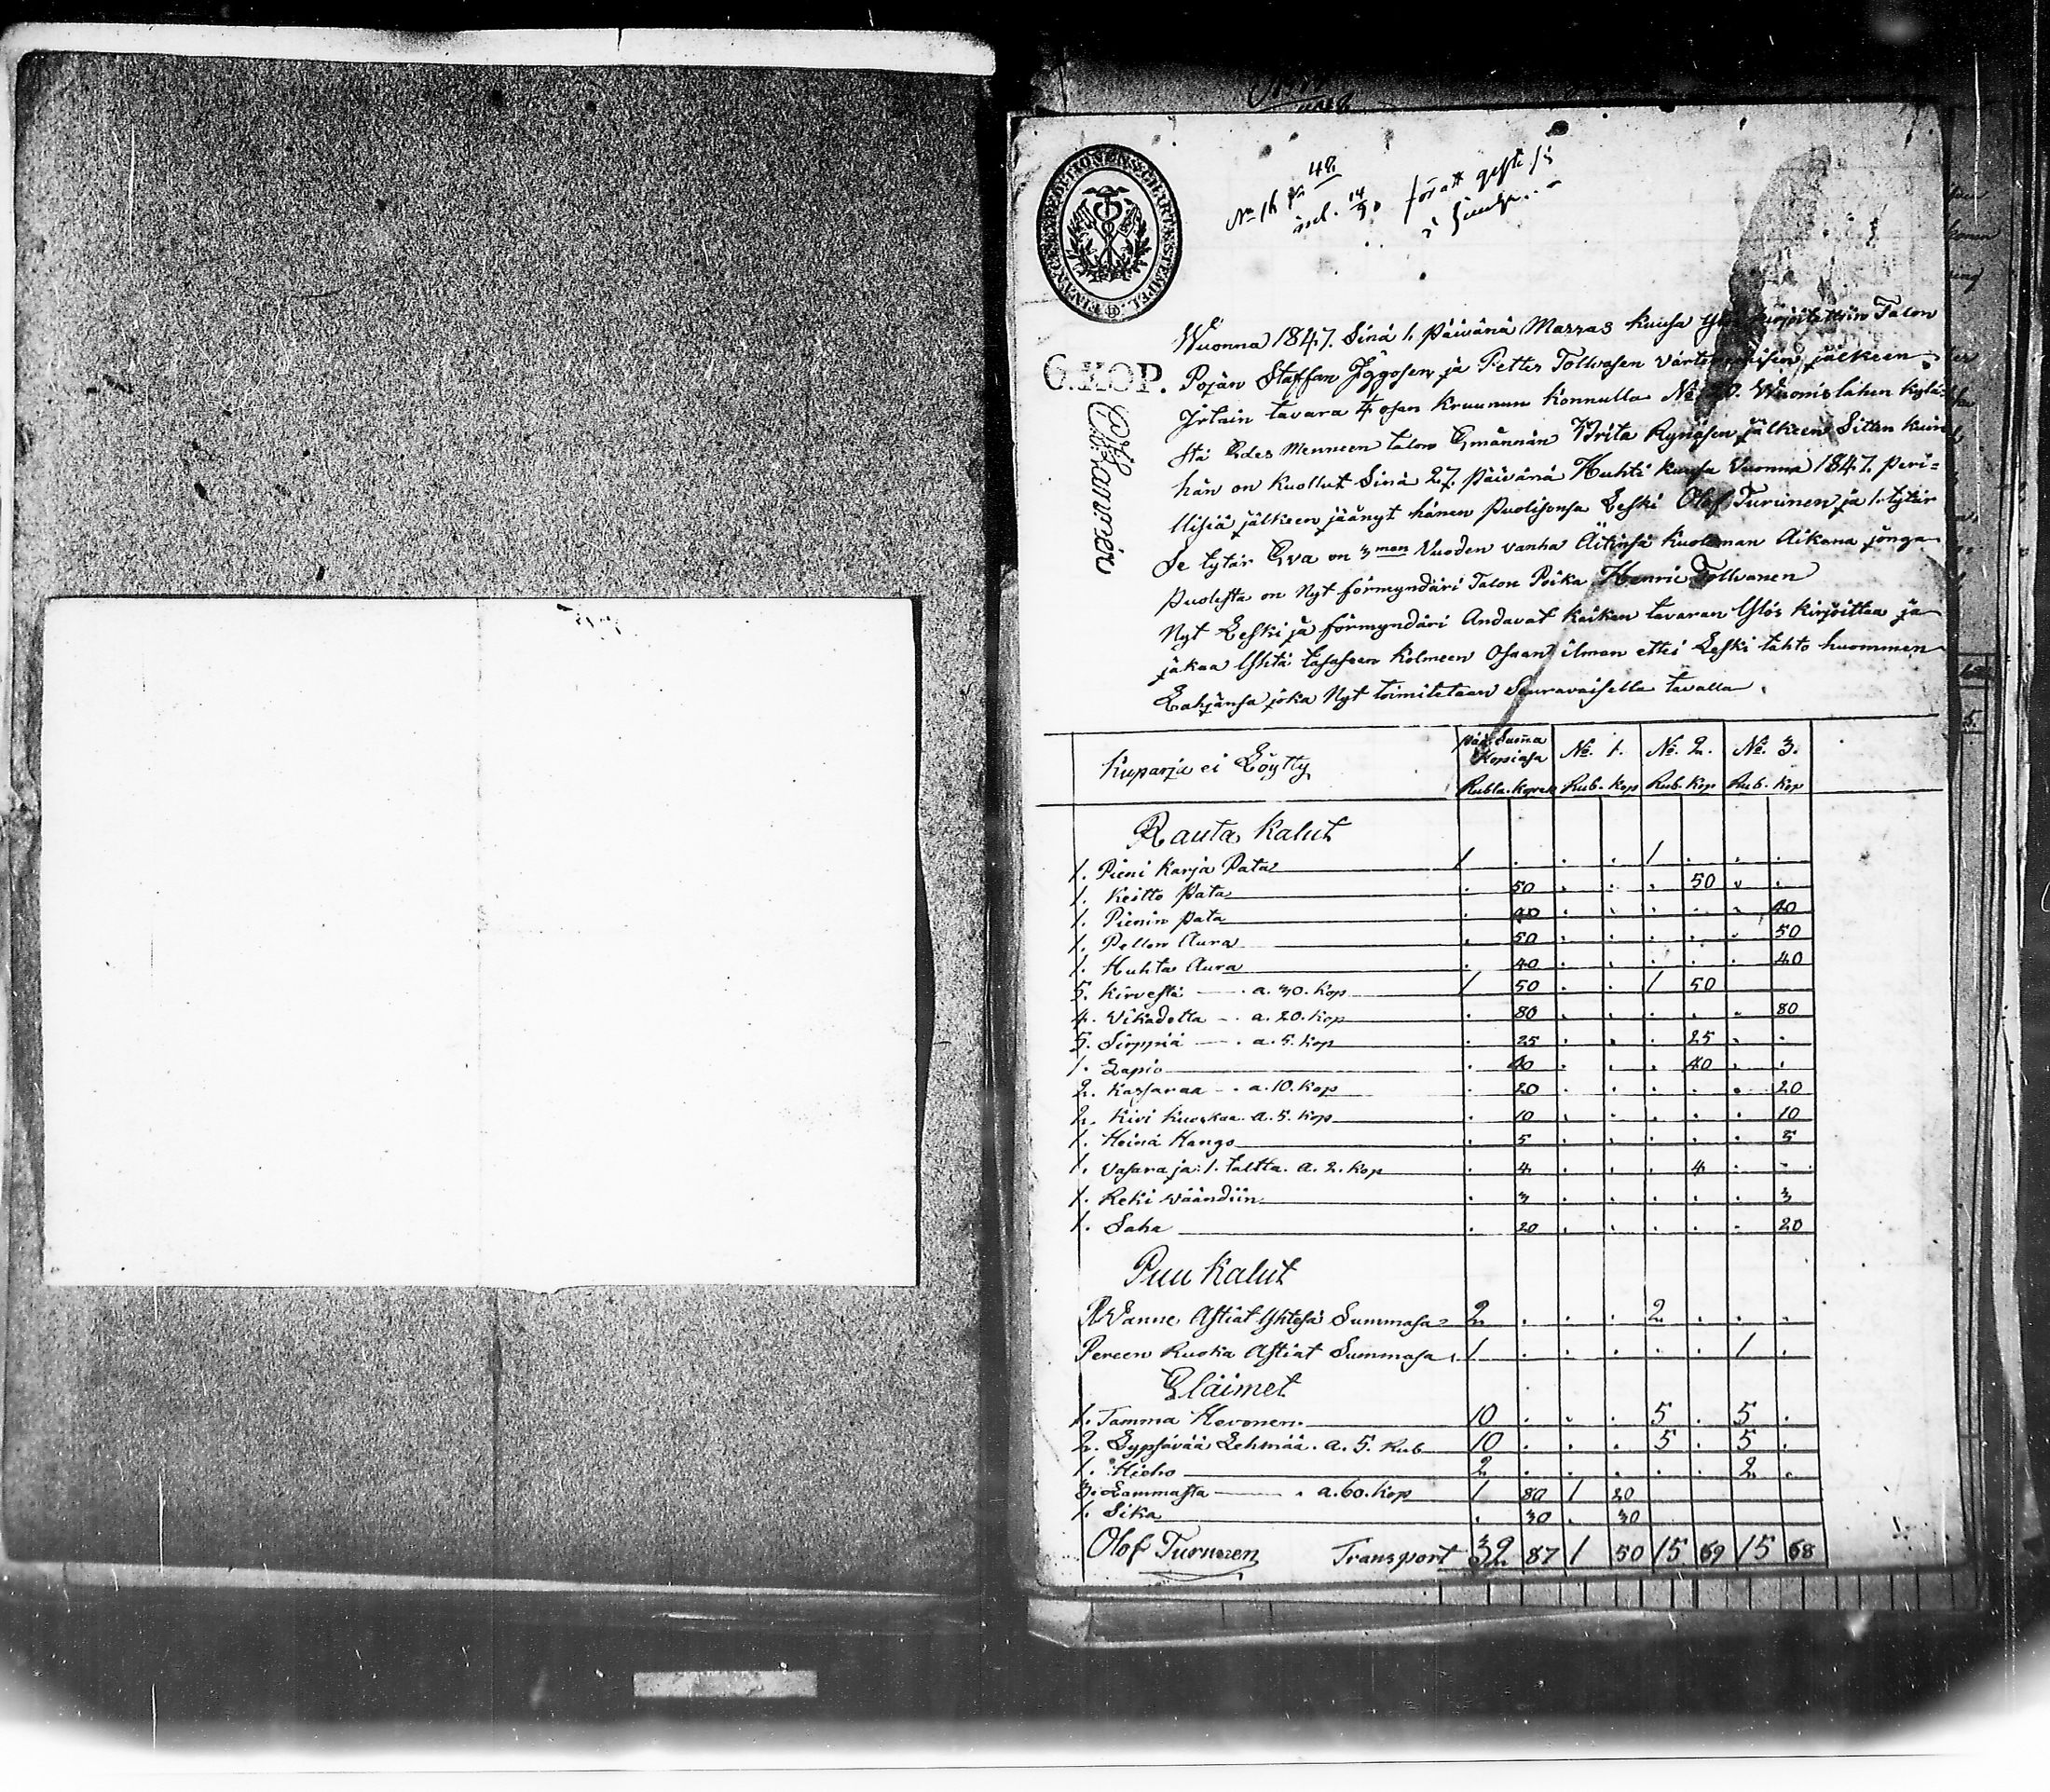 FINANCE EXPEDITIONENS CHARTÆ STEMPEL
No 16 48
insl. 14/9
6. KOP.
Wuonna 1847. Sinä 1. Päivänä Marras kuusa Talon
Pojan Staffan Jggosen ja Petter Tolluasen jälkeen
Jrtain tavara 1/4 osan Kruunun Konnulla No Wuonislahen kylä-
stä Edes Menneen talon Emännän Brita Rynösen jälkeen Sitten kuin
hän on kuollut Sinä 27. Päivänä Huhti kuusa Vuonna 1847. Peri-
llisiä jälkeen jäänyt hänen Puolisonsa Leski Olof Turunen ja 1. tytär
Se tytär Eva on 3 men Vuoden vanha Äitinsä Kuoleman Aikana jonga
Puolesta on Nyt förmyndäri Talon Poika Henric Tollvanen
Nyt Leski ja förmyndäri Andavat kaiken tavaran Ylös kirjoittaa ja
jakaa Yhtä tasaseen Kolmeen Osaan ilman ettei Leski tahto huommen
Lahjansa joka Nyt toimitetaan Seuravaisella tavalla.
Kuparja ei Löytty Pää Summa Kopiasa No. 1. No. 2. No. 3.
Rubla. Kopek Rub. Kop Rub. Kop Rub. Kop
Rauta Kalut
1. Pieni Karja Pata 1 . . . 1 . . .
1. Keitto Pata . 50 . . . 50 . .
1. Pienin Pata . 40 . . . . . 40
1. Pellon Aura . 50 . . . . . 50
1. Huhta Aura . 40 . . . . . 40
5. Kirvestä a. 30. Kop 1 50 . . 1 50
4. Vikadetta a. 20. Kop . 80 . . . . . 80
5. Sirppiä a. 5. Kop . 25 . . . 25 . .
1. Lapio . 40 . . . 40 . .
2. Kassaraa a. 10. Kop . 20 . . . . . 20
2. Kivi Kuokaa a. 5. Kop . 10 . . . . . 10
1. Heinä Hango . 5 . . . . . 5
1. Vasara ja 1. taltta. a. 2. Kop . 4 . . . 4 . .
1. Reki Wäändiin . 3 . . . . . 3
1. Saha . 20 . . . . . 20
Puu Kalut
Astiat Yhtesä Summasa 2 . . . 2 . . .
Pereen Ruoka Astiat Summasa 1 . . . . . 1 .
Eläimet
1. Tamma Hevonen 10 . . . 5 . 5 .
2. Lypsävää Lehmää. a. 5. Rub 10 . . . 5 . 5 .
1. Hieho 2 . . . . . 2 .
3. Lammasta a. 60. Kop 1 80 1 20
1. Sika . 30 . 30
Olof Turunen Transport 32 87 1 50 15 69 15 68